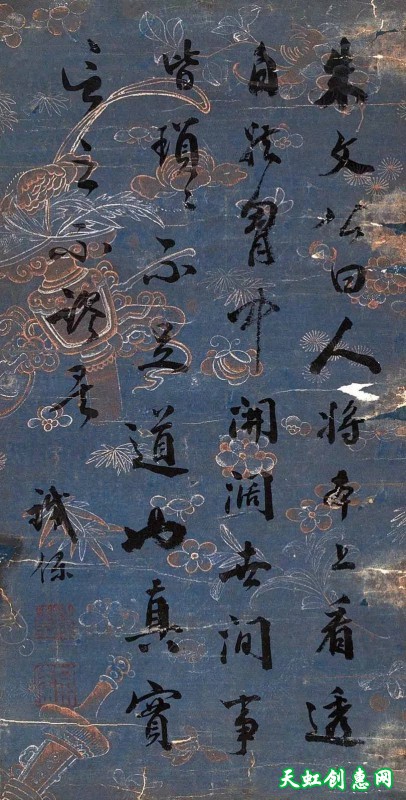 朱文公曰人將本上看透
自然胷中開闊世間事
皆瑣瑣不足道真實
言之不謬者
鐵保
天虹创惠网